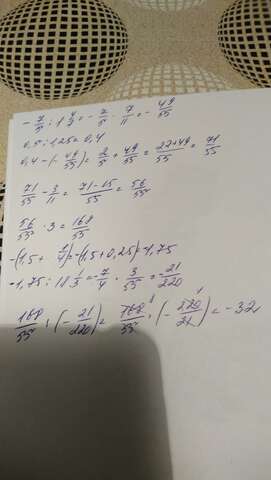 - 7/5 : 1 4/7 = - 7/5 · 7/11 = - 49/55
0,5 : 1,25 = 0,4
0,4 - (- 49/55) = 2/5 + 49/55 = 22+49/55 = 71/55
71/55 - 3/11 = 71-15/55 = 56/55
56/55 · 3 = 168/55
-(1,5 + 1/4) = -(1,5+0,25) = -1,75
-1,75 : 18 1/3 = - 7/4 · 3/55 = - 21/220
168/55 : (- 21/220) = 168/55 · (- 220/21) = -32